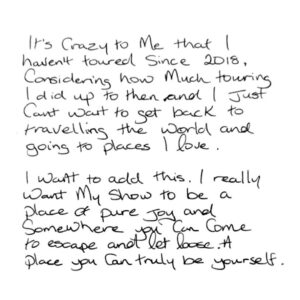 It's Crazy to Me that I
haven't toured Since 2018,
Considering how Much touring
I did up to then and I Just
Cant wait to get back to
travelling the world and
going to places I love.
I want to add this. I really
Want My Show to be a
Place of pure Joy and
Somewhere you Can Come
to escape and let loose. A
place you Can truly be yourself.